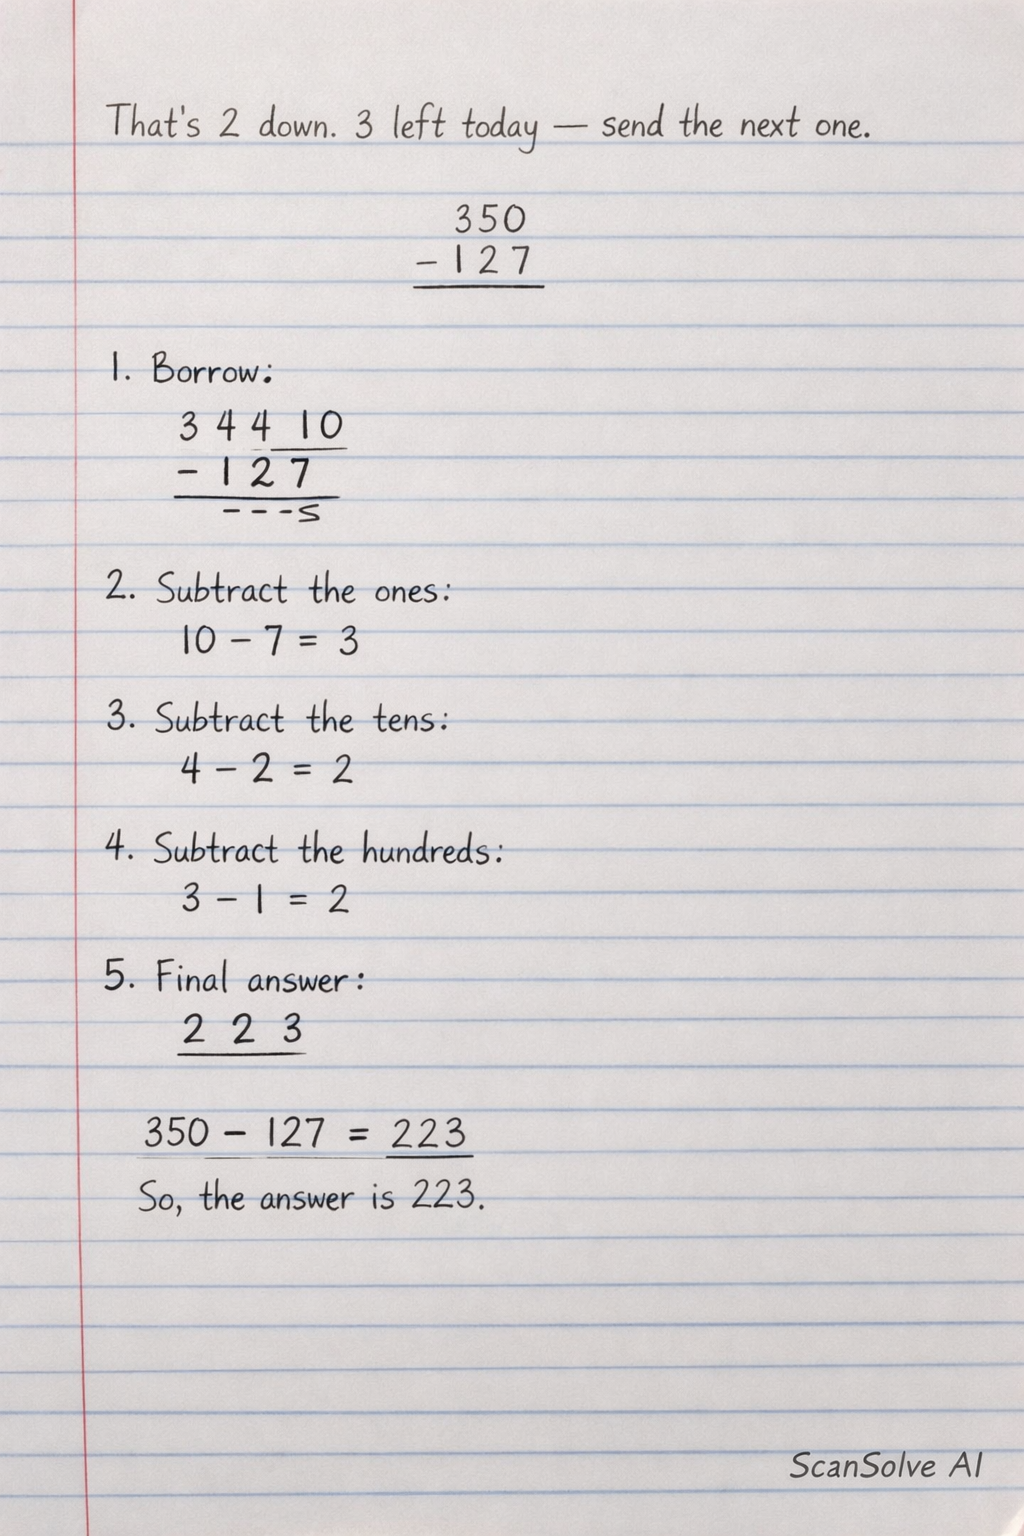 That's 2 down. 3 left today — send the next one.
350
- 127
1. Borrow:
3 4 4 10
- 1 2 7
- - - S
2. Subtract the ones:
10 - 7 = 3
3. Subtract the tens:
4 - 2 = 2
4. Subtract the hundreds:
3 - 1 = 2
5. Final answer:
2 2 3
350 - 127 = 223
So, the answer is 223.
ScanSolve AI